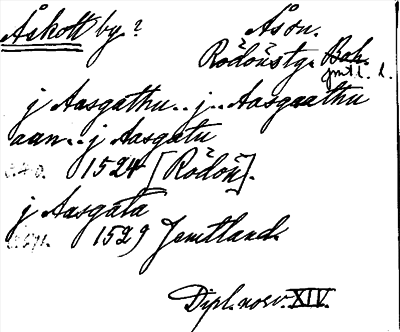 Åskott by? Åsön.
Rödöns tg. Bok.
Jmtl. l.
j Aasgathu.. j.. Aasgaathu
aan.. j Aasgatu
1524 [Rödön].
j Aasgata
1529 Jemtland.
Dipl. norv. XIV.